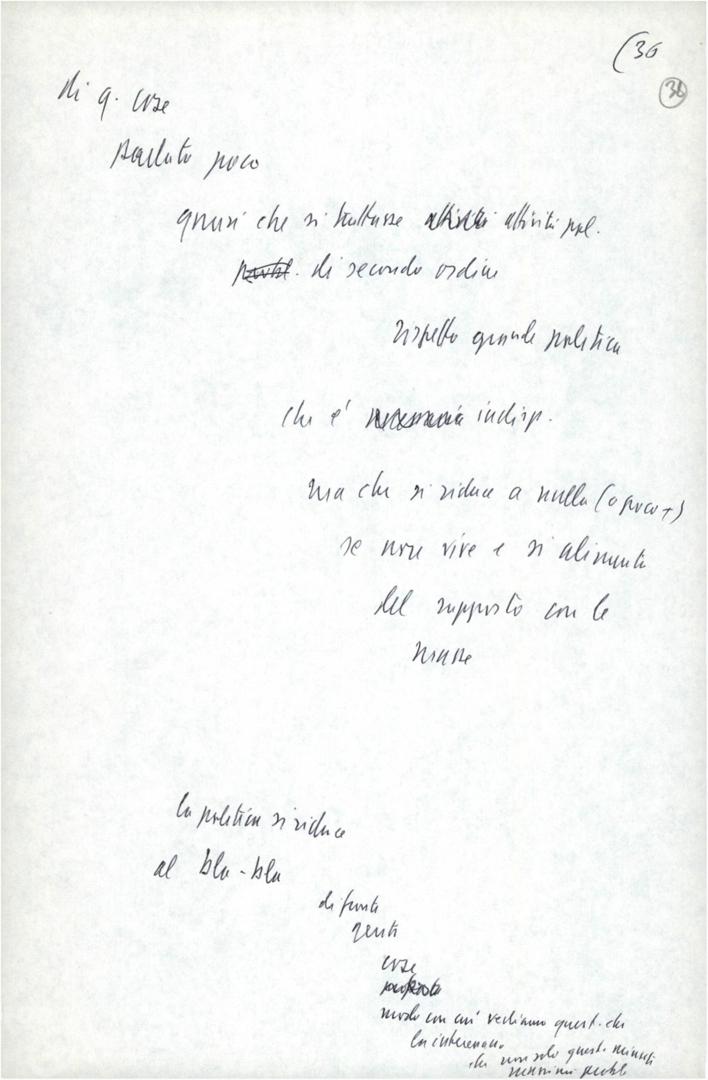 (36
36
di q. cose
parlato poco
quasi che si trattasse attività attività pol.
di secondo ordine
rispetto grande politica
che è necessaria indisp.
ma che si riduce a nulla (o poco +)
se non vive e si alimenta
del rapporto con le
masse
la politica si riduce
al bla-bla
di fronte
gente
cose
modo con cui vediamo quest. che
la interessano
che non solo questi minuti